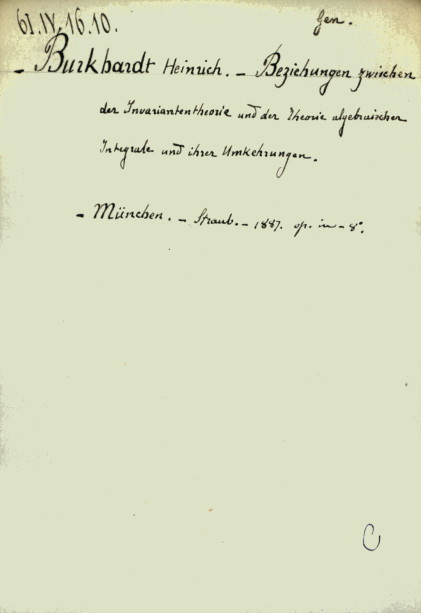 61.IV.16.10.
Gen.
- Burkhardt Heinrich. - Beziehungen zwischen
der Invariantentheorie und der Theorie algebraischer
Integrale und ihrer Umkehrungen.
- München. - Straub. - 1887. op. in-8°.
C